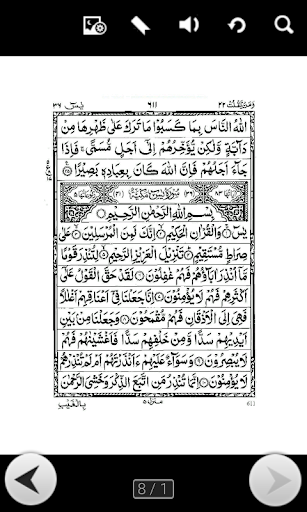 يٰسٓ ٣٦ ٦١١ وَمَنْ يَّقْنُتْ ٢٢
اللّٰهُ النَّاسَ بِمَا كَسَبُوْا مَا تَرَكَ عَلٰى ظَهْرِهَا مِنْ
دَآبَّةٍ وَّلٰكِنْ يُّؤَخِّرُهُمْ اِلٰٓى اَجَلٍ مُّسَمًّى ۚ فَاِذَا
جَآءَ اَجَلُهُمْ فَاِنَّ اللّٰهَ كَانَ بِعِبَادِهٖ بَصِيْرًا ۝٤٥
سُوْرَةُ يٰسٓ مَكِّيَّةٌ
بِسْمِ اللّٰهِ الرَّحْمٰنِ الرَّحِيْمِ
يٰسٓ ۝١ وَالْقُرْاٰنِ الْحَكِيْمِ ۝٢ اِنَّكَ لَمِنَ الْمُرْسَلِيْنَ ۝٣ عَلٰى
صِرَاطٍ مُّسْتَقِيْمٍ ۝٤ تَنْزِيْلَ الْعَزِيْزِ الرَّحِيْمِ ۝٥ لِتُنْذِرَ قَوْمًا
مَّآ اُنْذِرَ اٰبَآؤُهُمْ فَهُمْ غٰفِلُوْنَ ۝٦ لَقَدْ حَقَّ الْقَوْلُ عَلٰٓى
اَكْثَرِهِمْ فَهُمْ لَا يُؤْمِنُوْنَ ۝٧ اِنَّا جَعَلْنَا فِيْٓ اَعْنَاقِهِمْ اَغْلٰلًا
فَهِيَ اِلَى الْاَذْقَانِ فَهُمْ مُّقْمَحُوْنَ ۝٨ وَجَعَلْنَا مِنْۢ بَيْنِ
اَيْدِيْهِمْ سَدًّا وَّمِنْ خَلْفِهِمْ سَدًّا فَاَغْشَيْنٰهُمْ فَهُمْ
لَا يُبْصِرُوْنَ ۝٩ وَسَوَآءٌ عَلَيْهِمْ ءَاَنْذَرْتَهُمْ اَمْ لَمْ تُنْذِرْهُمْ
لَا يُؤْمِنُوْنَ ۝١٠ اِنَّمَا تُنْذِرُ مَنِ اتَّبَعَ الذِّكْرَ وَخَشِيَ الرَّحْمٰنَ
منزل ٥ بِالْغَيْبِ
611
8 / 1